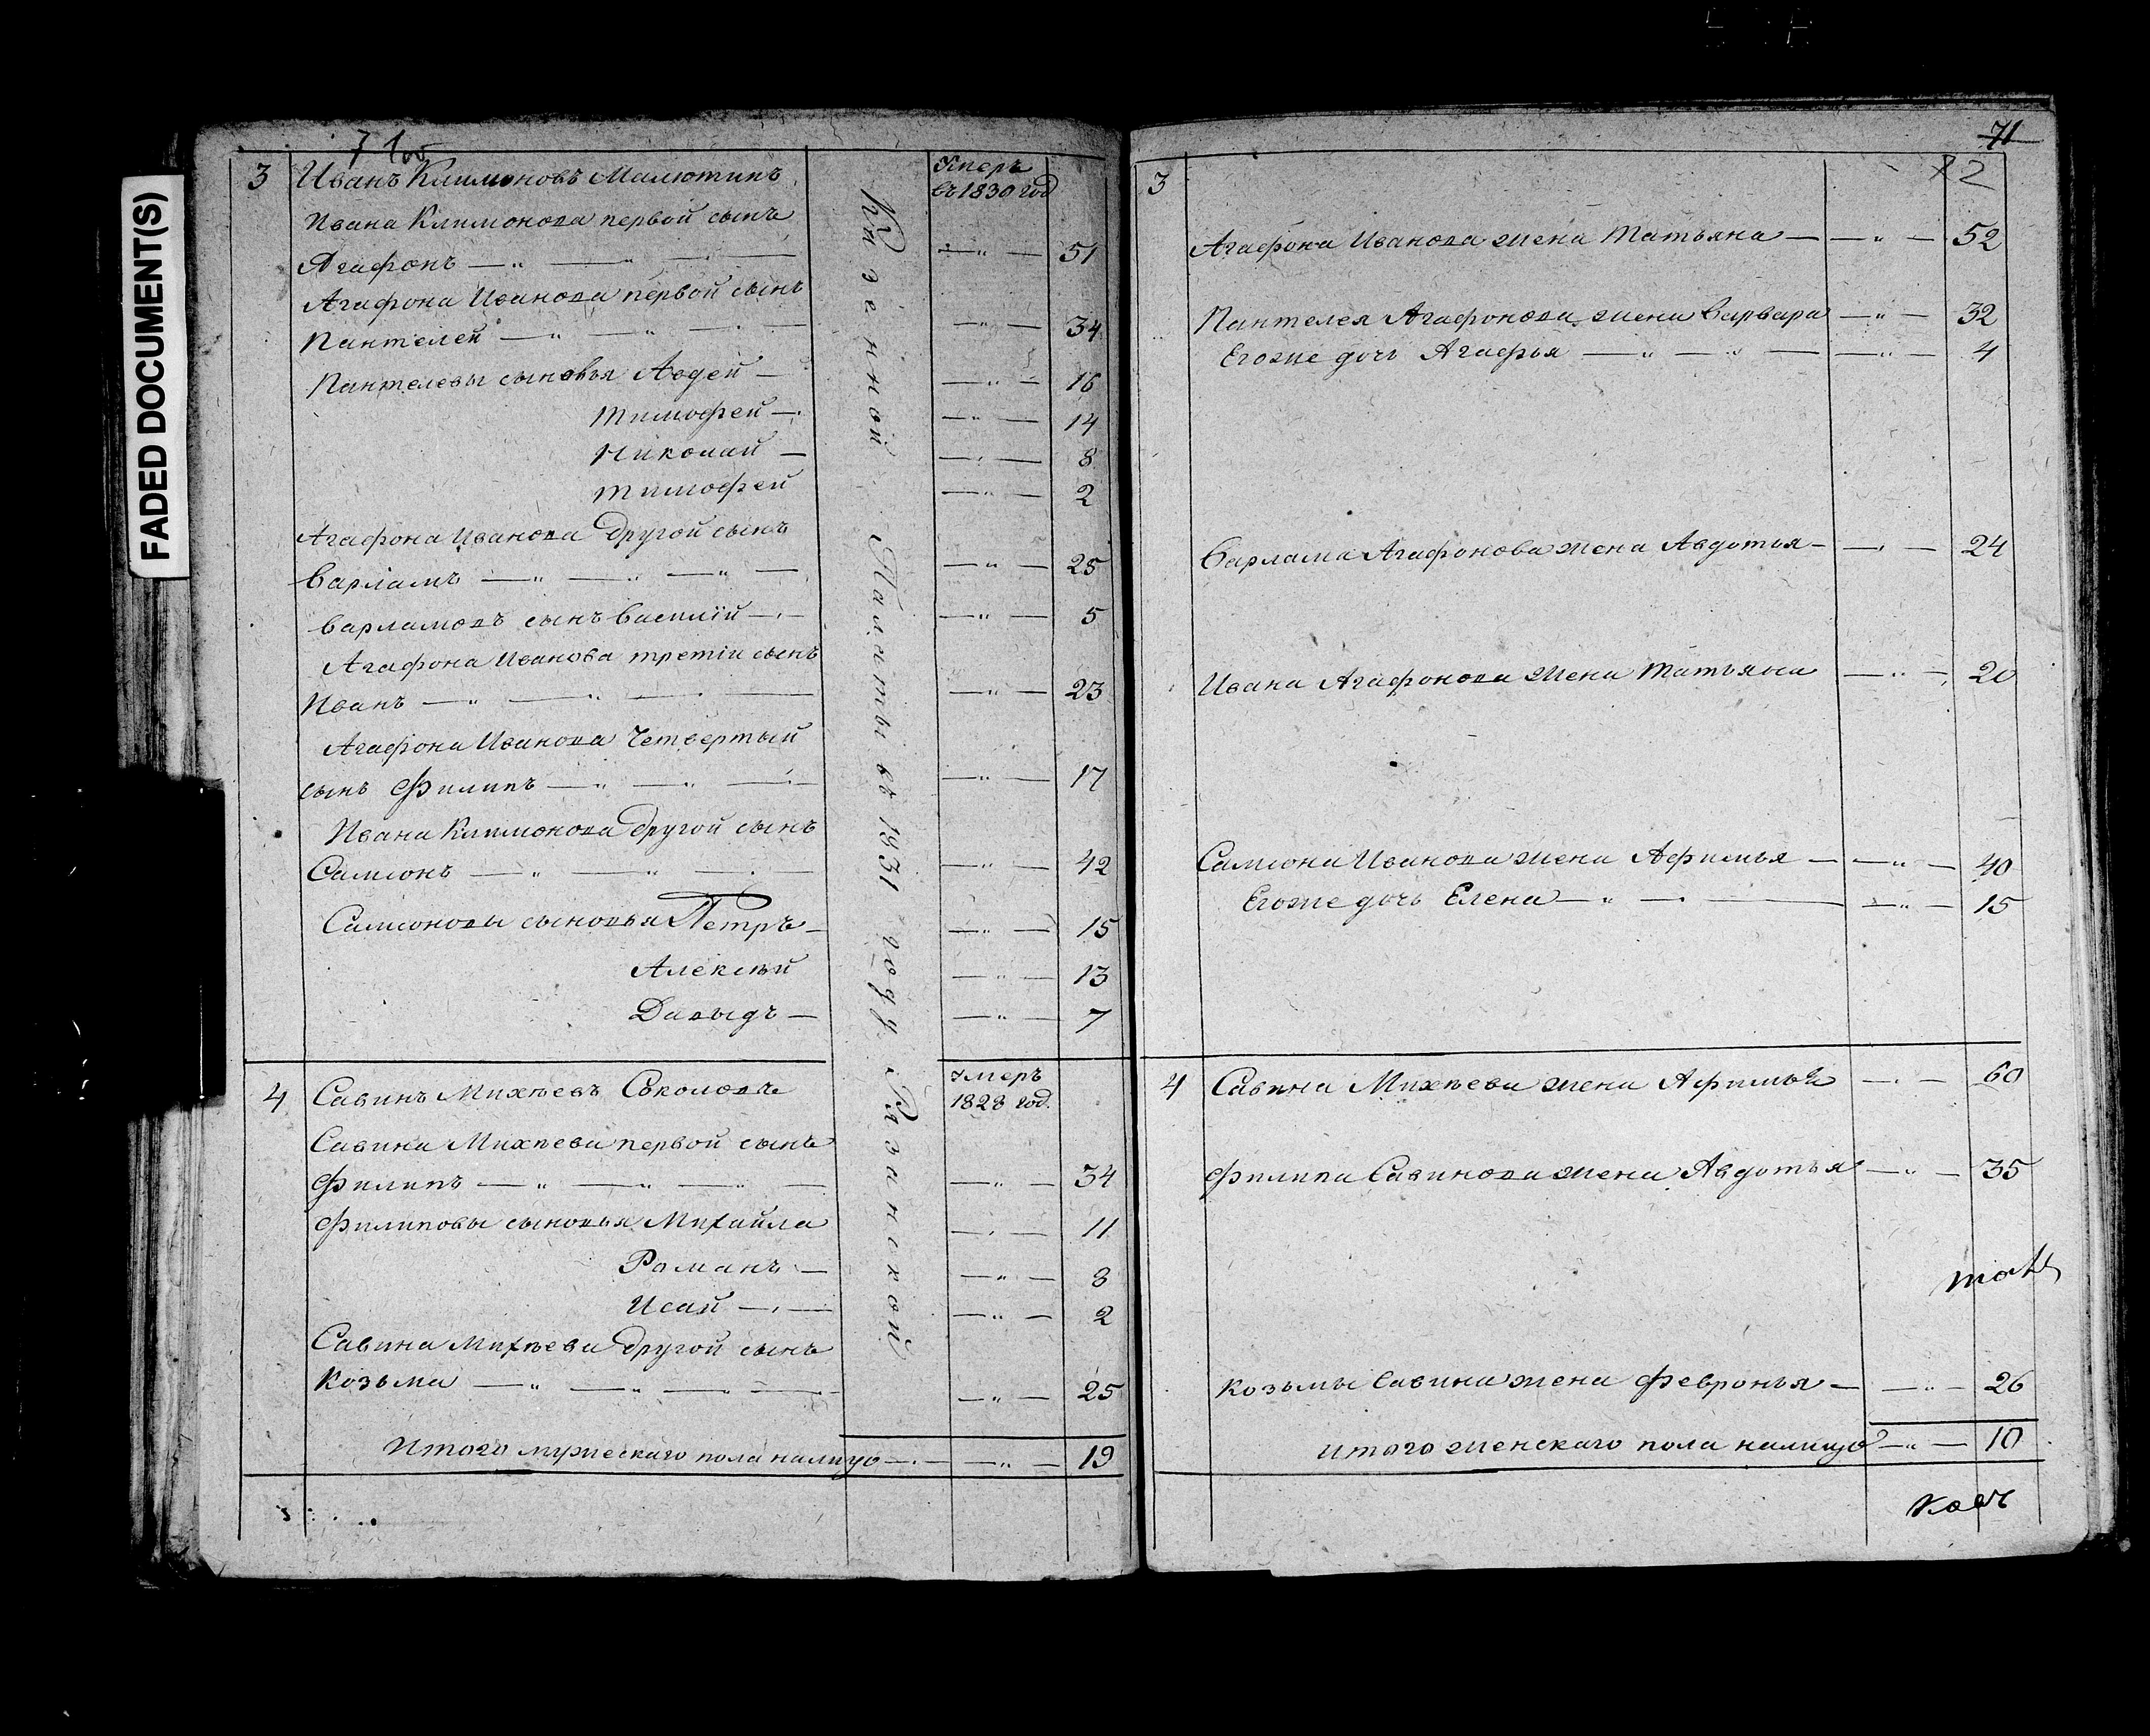 FADED DOCUMENT(S)
71об
3 Иванъ Климоновъ Малютинъ Умеръ въ 1830 год
Ивана Климонова первой сынъ
Агафонъ — " — " — — " — 51
Агафона Иванова первой сынъ
Пантелей — " — " — — " — 34
Пантелевы сыновья Авдей — — " — 16
Тимофей — — " — 14
Николай — — " — 8
Тимофей — " — 2
Агафона Иванова другой сынъ
Варламъ — " — " — " — — " — 25
Варламовъ сынъ Василій — — " — 5
Агафона Иванова третіи сынъ
Иванъ — " — " — — " — 23
Агафона Иванова Четвертый
сынъ Филипъ — " — " — — " — 17
Ивана Климонова другой сынъ
Самсонъ — " — " — — " — 42
Самсоновы сыновья Петръ — — " — 15
Алексѣй — " — 13
Давыдъ — — " — 7
4 Савинъ Михѣевъ Соколовъ умеръ 1828 год.
Савина Михѣева первой сынъ
Филипъ — " — " — " — — " — 34
Филиповы сыновья Михайла — " — 11
Романъ — — " — 8
Исай — — " — 2
Савина Михѣева другой сынъ
Козьма — " — " — " — — " — 25
Итого мужескаго пола налицо — " — 19
Казенной Палаты въ 1831 году Рязанской
71
72
3
Агафона Иванова жена Татьяна — — " — 52
Пантелея Агафонова жена Варвара — " — 32
Егоже дочь Агафья — " — " — — " — 4
Варлама Агафонова жена Авдотья — — " — 24
Ивана Агафонова жена Татьяна — " — 20
Самсона Иванова жена Афимья — — " — 40
Егоже дочь Елена — " — — " — 15
4 Савина Михѣева жена Афимья — " — 60
Филипа Савинова жена Авдотья — " — 35
Козьмы Савина жена Февронья — — " — 26
итого женскаго пола налицо — " — 10